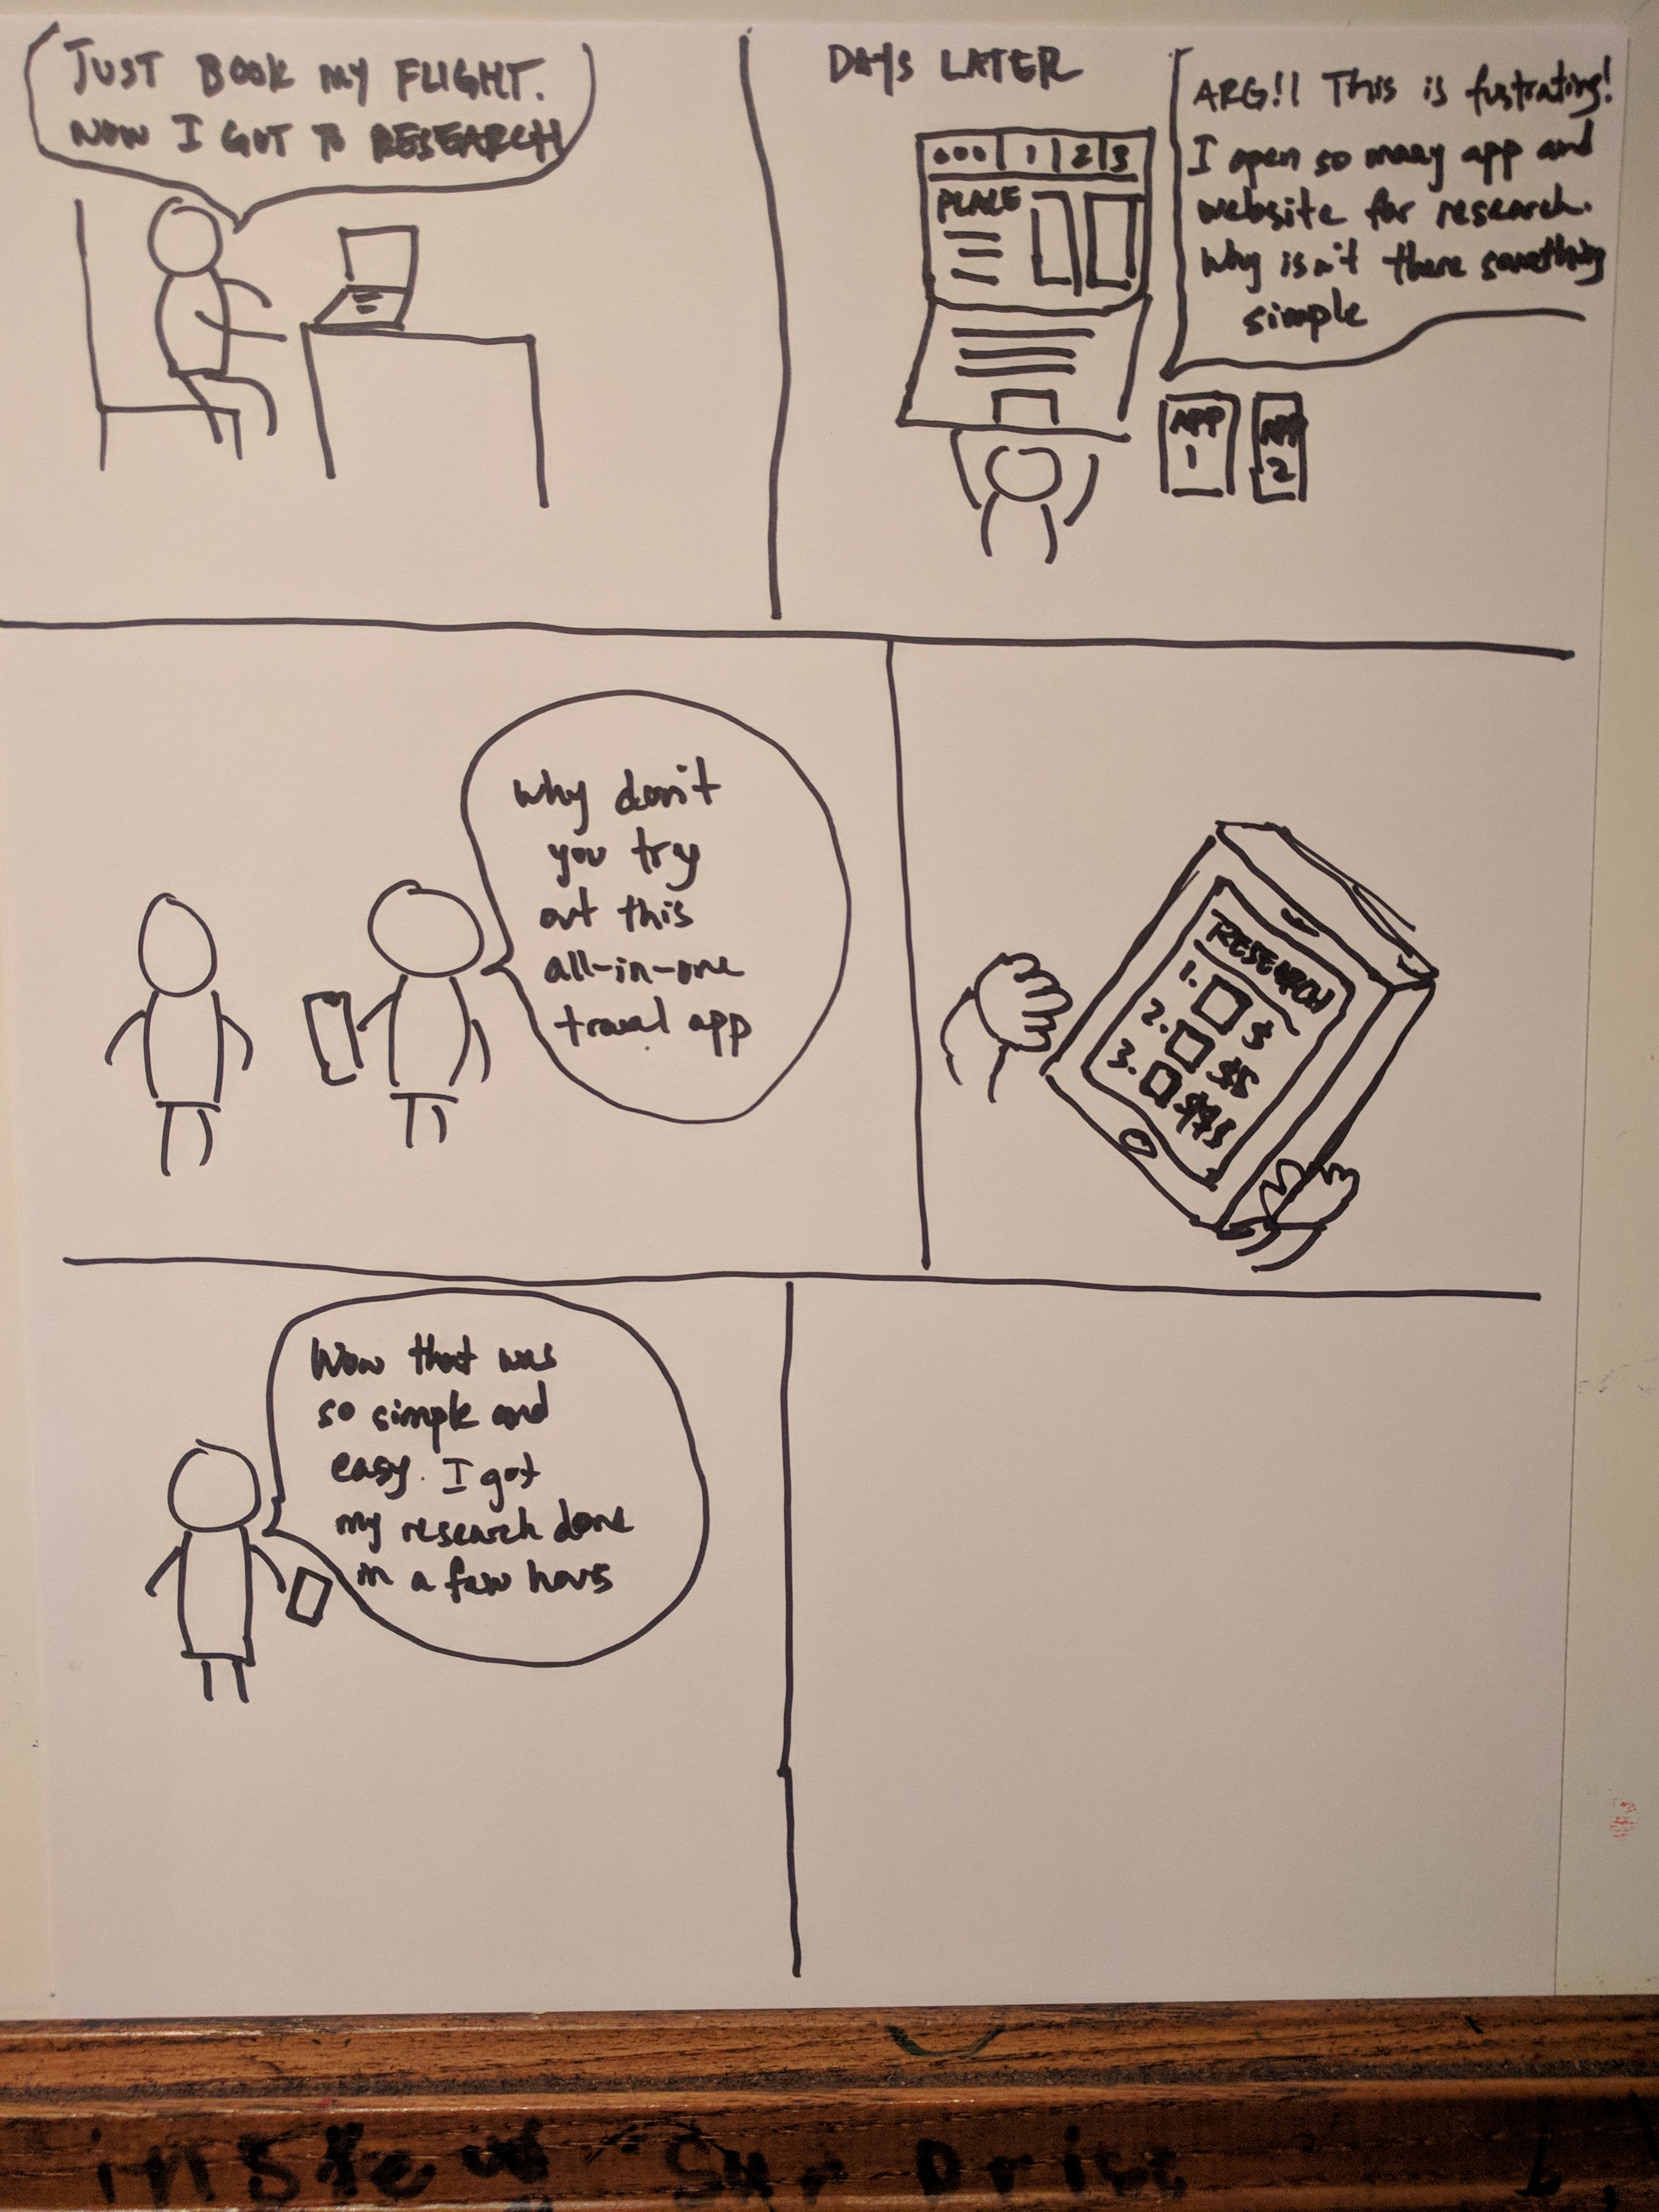 JUST BOOK MY FLIGHT.
NOW I GOT TO RESEARCH
DAYS LATER
ARG!! This is fustrating!
I open so many app and
website for research.
Why isn't there something
simple
1 2 3
PLACE
APP
1
APP
2
Why don't
you try
out this
all-in-one
travel app
RESEARCH
1. $
2. $$
3. $$$
Wow that was
so simple and
easy. I got
my research done
in a few hours